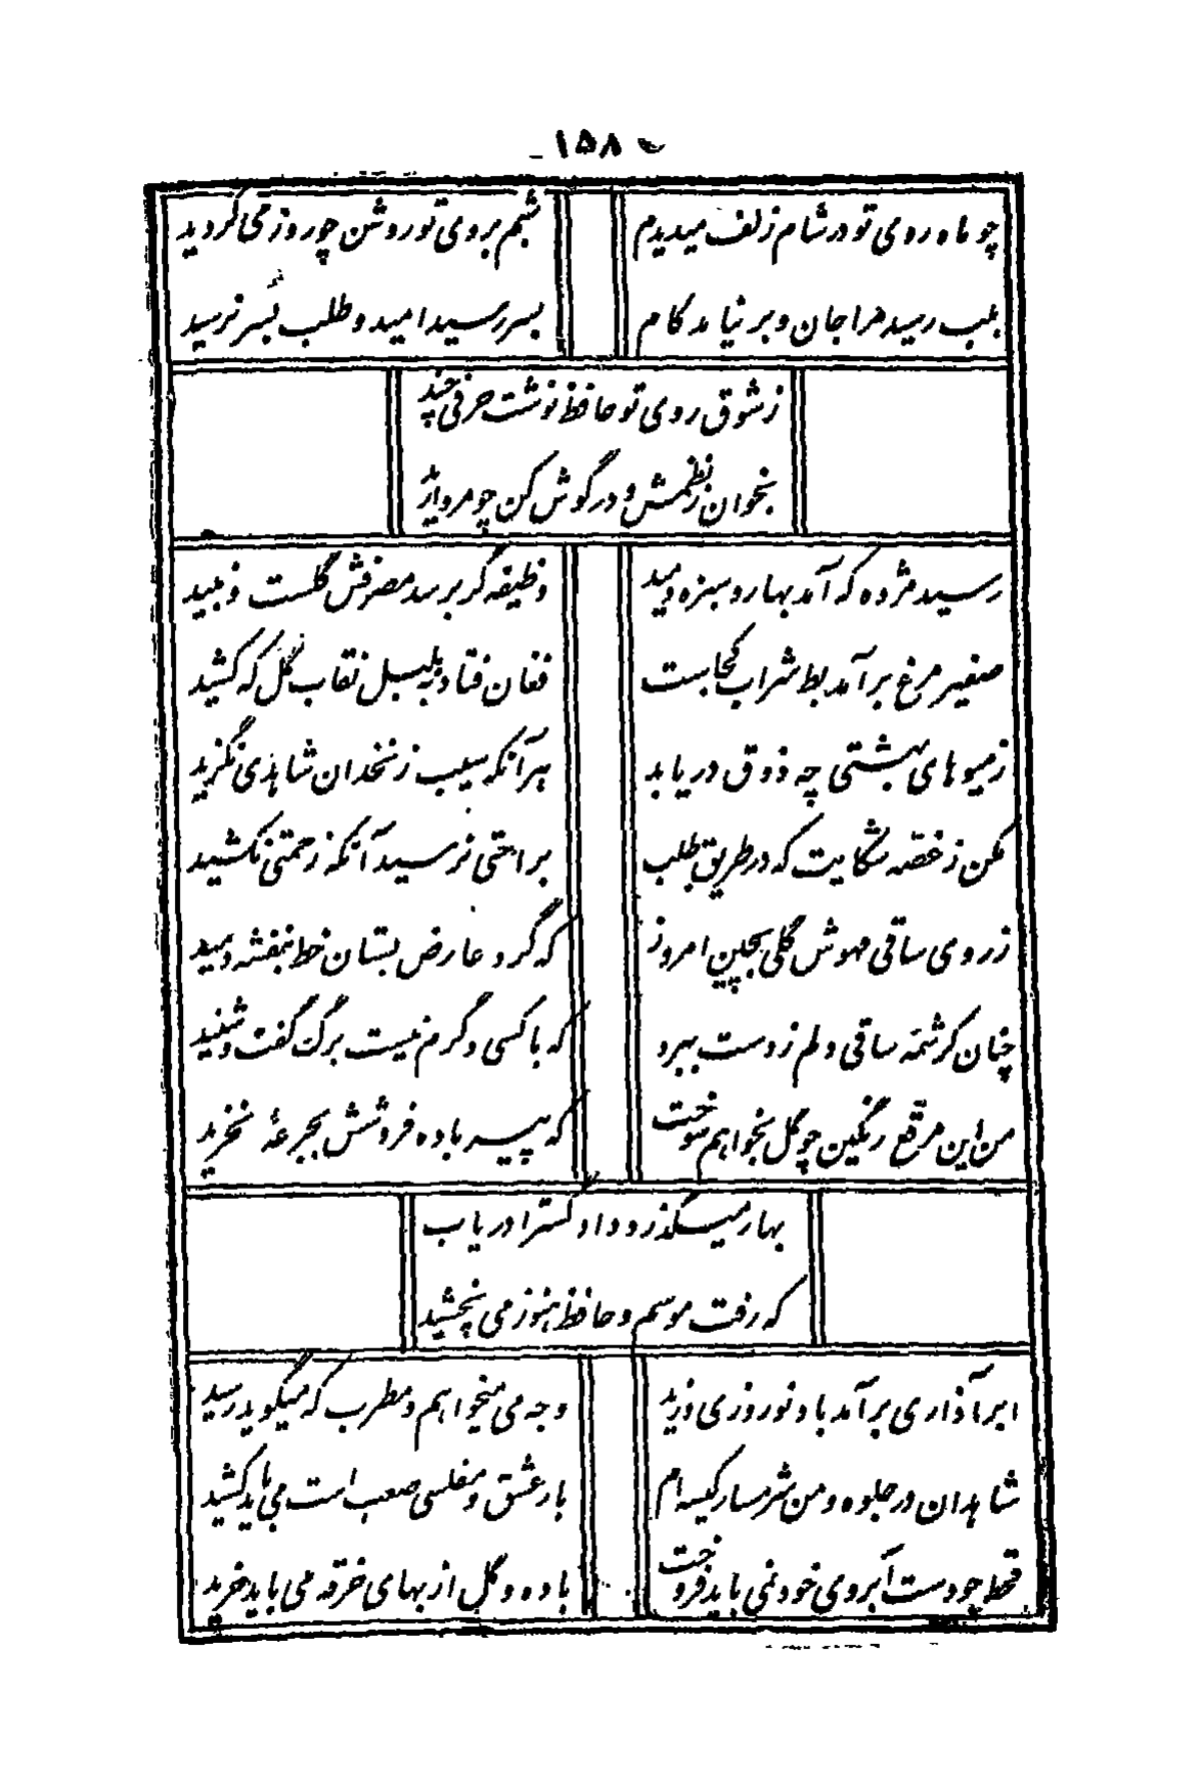 ۱۵۸
چو ماه روی تو در شام زلف میدیدم شبم بروی تو روشن چو روز می گردید
بلب رسید مرا جان و برنیامد کام بسر رسید امید و طلب بسر نرسید
ز شوق روی تو حافظ نوشت حرفی چند
بخوان ز نظمش و در گوش کن چو مروارید
رسید مژده که آمد بهار و سبزه دمید وظیفه گر برسد مصرفش گلست و نبید
صفیر مرغ برآمد بط شراب کجاست فغان فتاد به بلبل نقاب گل که کشید
ز میوهای بهشتی چه ذوق دریابد هر آنکه سیب زنخدان شاهدی نگزید
مکن ز غصه شکایت که در طریق طلب براحتی نرسید آنکه زحمتی نکشید
ز روی ساقی مهوش گلی بچین امروز که گرد عارض بستان خط بنفشه دمید
چنان کرشمه ساقی دلم ز دست ببرد که با کسی دگرم نیست برگ گفت و شنید
من این مرقع رنگین چو گل بخواهم سوخت که پیر باده فروشش بجرعهٔ نخرید
بهار میگذرد دادگسترا دریاب
که رفت موسم و حافظ هنوز می نچشید
ابر آذاری برآمد باد نوروزی وزید وجه می میخواهم و مطرب که میگوید رسید
شاهدان در جلوه و من شرمسار کیسه ام بار عشق و مفلسی صعب است می باید کشید
قحط جودست آبروی خود نمی باید فروخت باده و گل از بهای خرقه می باید خرید